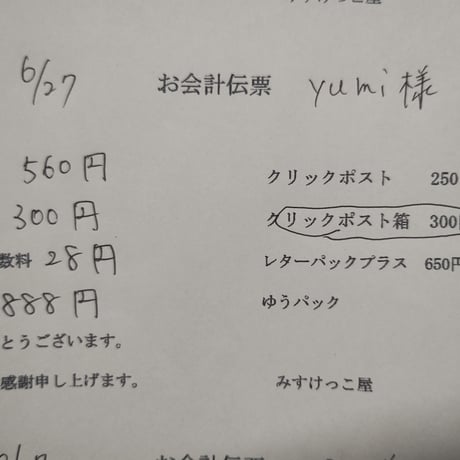 6/27 お会計伝票 yumi様
560円 クリックポスト 250
300円 クリックポスト箱 300円
数料 28円 レターパックプラス 650円
888円 ゆうパック
とうございます。
感謝申し上げます。 みすけっこ屋